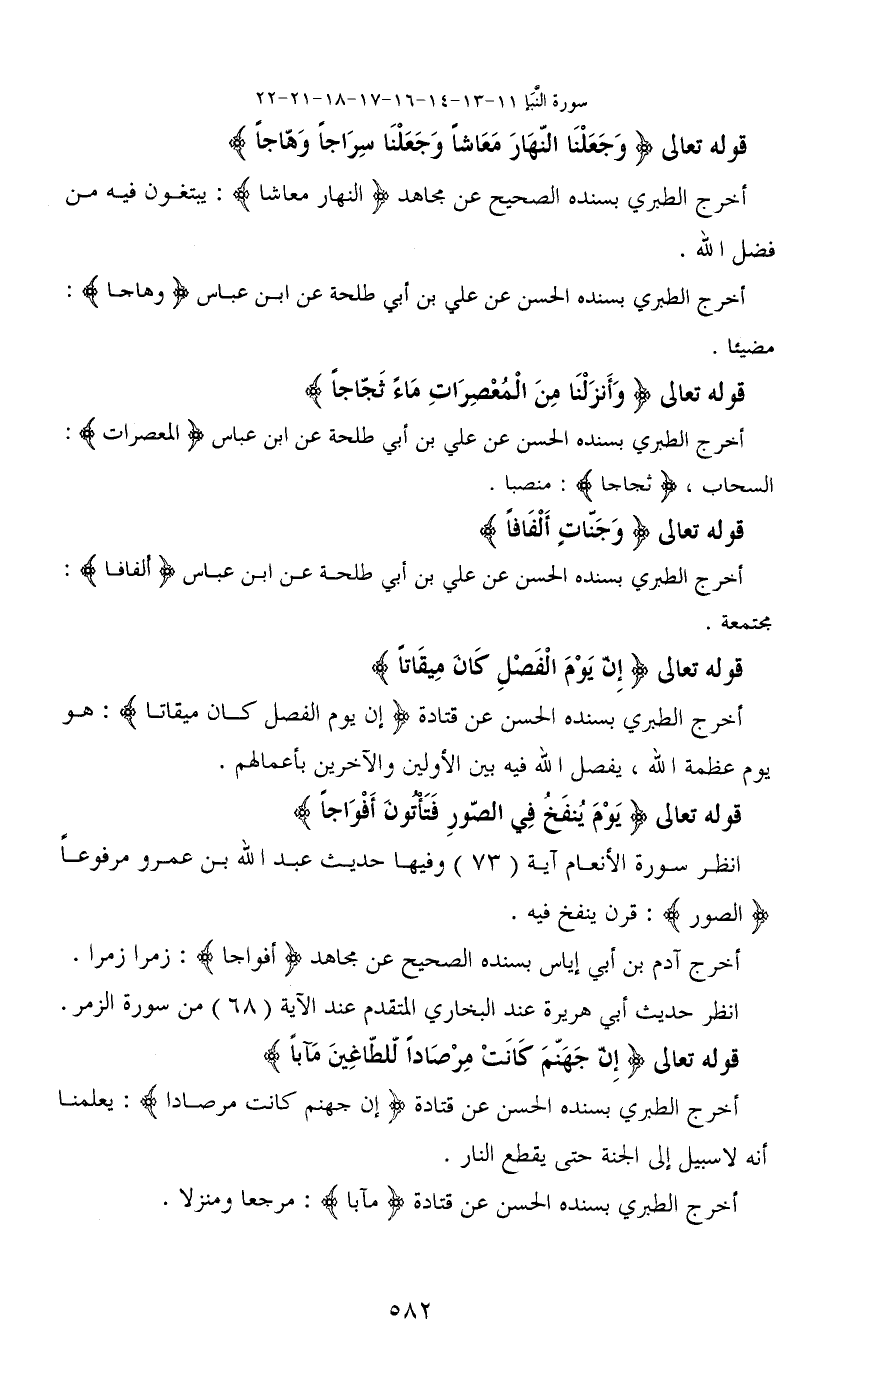 سورة النَّبَإ ١١-١٣-١٤-١٦-١٧-١٨-٢١-٢٢
قوله تعالى ﴿ وَجَعَلْنَا النّهَارَ مَعَاشاً وَجَعَلْنَا سِرَاجاً وَهّاجاً ﴾
أخرج الطبري بسنده الصحيح عن مجاهد ﴿ النهار معاشا ﴾ : يبتغون فيه من
فضل الله .
أخرج الطبري بسنده الحسن عن علي بن أبي طلحة عن ابن عباس ﴿ وهاجا ﴾ :
مضيئا .
قوله تعالى ﴿ وَأَنزَلْنَا مِنَ الْمُعْصِرَاتِ مَاءً ثَجّاجاً ﴾
أخرج الطبري بسنده الحسن عن علي بن أبي طلحة عن ابن عباس ﴿ المعصرات ﴾ :
السحاب ، ﴿ ثجاجا ﴾ : منصبا .
قوله تعالى ﴿ وَجَنّاتٍ أَلْفَافاً ﴾
أخرج الطبري بسنده الحسن عن علي بن أبي طلحة عن ابن عباس ﴿ ألفافا ﴾ :
مجتمعة .
قوله تعالى ﴿ إِنّ يَوْمَ الْفَصْلِ كَانَ مِيقَاتاً ﴾
أخرج الطبري بسنده الحسن عن قتادة ﴿ إن يوم الفصل كان ميقاتا ﴾ : هو
يوم عظمة الله ، يفصل الله فيه بين الأولين والآخرين بأعمالهم .
قوله تعالى ﴿ يَوْمَ يُنفَخُ فِي الصّورِ فَتَأْتُونَ أَفْوَاجاً ﴾
انظر سورة الأنعام آية ( ٧٣ ) وفيها حديث عبد الله بن عمرو مرفوعاً
﴿ الصور ﴾ : قرن ينفخ فيه .
أخرج آدم بن أبي إياس بسنده الصحيح عن مجاهد ﴿ أفواجا ﴾ : زمرا زمرا .
انظر حديث أبي هريرة عند البخاري المتقدم عند الآية ( ٦٨ ) من سورة الزمر .
قوله تعالى ﴿ إِنّ جَهَنّمَ كَانَتْ مِرْصَاداً لّلطّاغِينَ مَآباً ﴾
أخرج الطبري بسنده الحسن عن قتادة ﴿ إن جهنم كانت مرصادا ﴾ : يعلمنا
أنه لاسبيل إلى الجنة حتى يقطع النار .
أخرج الطبري بسنده الحسن عن قتادة ﴿ مآبا ﴾ : مرجعا ومنزلا .
٥٨٢